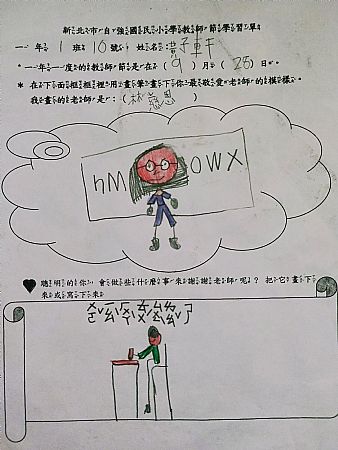 新北市自強國民小學教師節學習單
一年 1 班 10 號 姓名:
* 一年一度的教師節是在(9)月(28)日。
* 在下面框框裡用畫筆畫下你最敬愛老師的模樣。
我畫的是:(林慈恩)
hM OWX
聰明的你,會做些什麼事來謝謝老師呢?把它畫下
來或寫下來